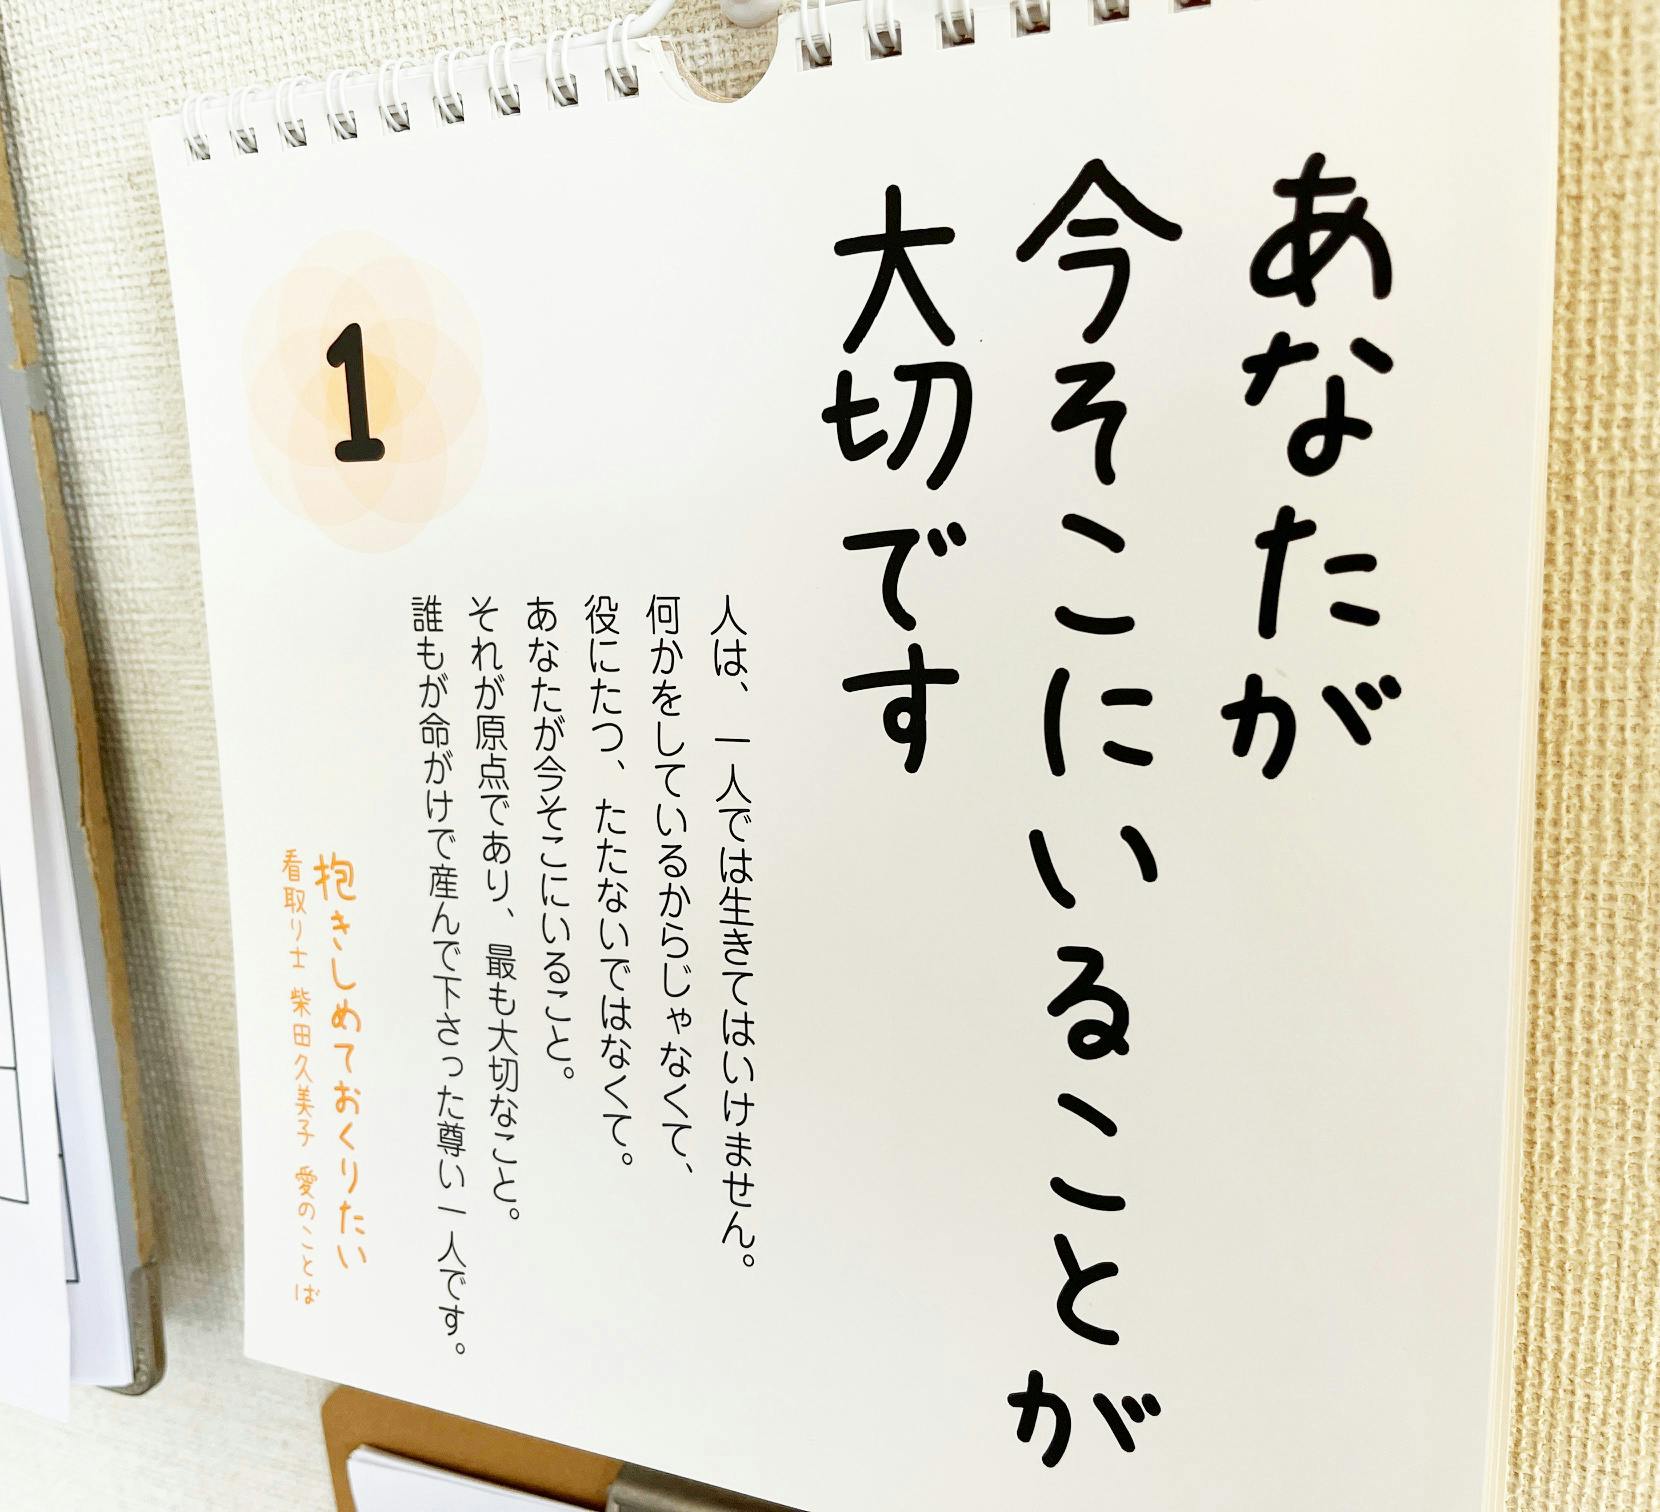 あなたが
今そこにいることが
大切です
1
人は、一人では生きてはいけません。
何かをしているからじゃなくて、
役にたつ、たたないではなくて。
あなたが今そこにいること。
それが原点であり、最も大切なこと。
誰もが命がけで産んで下さった尊い一人です。
抱きしめておくりたい
看取り士 柴田久美子 愛のことば